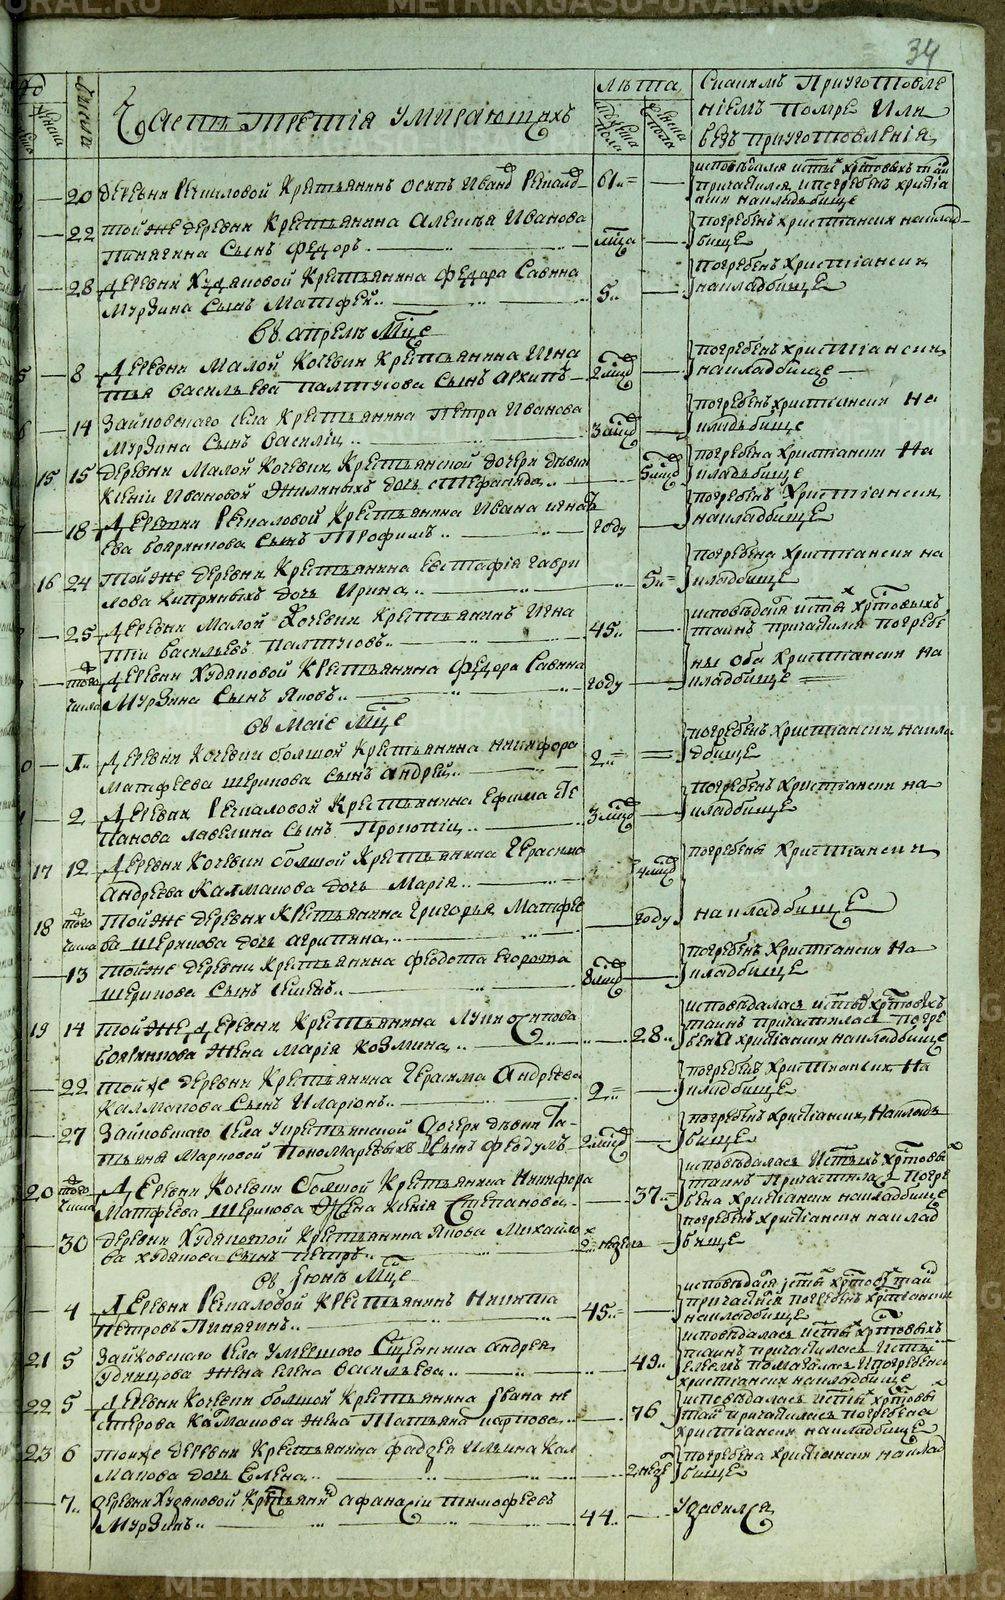 METRIKI.GASO-URAL.RU
34
Числа
Часть третія умирающихъ
Лѣта
Мужеска пола
Женска пола
Скакимъ приуготовле
ніемъ помре или
безъ приуготовленія
20 деревни Речкаловой крестьянинъ осипъ Ивановъ 61
исповѣдался
причастился и погребенъ христіа
нски на кладбище
22 той же деревни крестьянина Алексѣя Иванова
Пинягина сынъ Федоръ мца
погребенъ христіански на клад
бище
28 деревни Худяковой крестьянина Федора Савина
Мурзина сынъ Матфей 5
погребенъ христіански
на кладбище
въ апрелѣ мце
8 деревни Малой Кочевки крестьянина Игна
тья Васильева Палтусова сынъ Архипъ 2 мцѣ
погребенъ христіански
на кладбище
14 Зайковскаго села крестьянина Петра Иванова
Мурзина сынъ Василій 3
погребенъ христіански на
кладбище
15 15 деревни Малой Кочевки крестьянской дочери дѣвки
Ксеніи Ивановой Жилиныхъ дочь Стефанида 5 мцѣ
погребена христіански на
кладбище
18 деревни Речкаловой крестьянина Ивана Игнать
ева Бояркинова сынъ Трофимъ году
погребенъ христіански
на кладбище
16 24 той же деревни крестьянина Евстафія Гаври
лова Киприныхъ дочь Ирина 5
погребена христіански на
кладбище
25 деревни Малой Кочевки крестьянинъ Игна
тій Васильевъ Палтусовъ 45
исповѣдался
таинъ причастился погребе
того числа деревни Худяковой крестьянина Федора Савина
Мурзина сынъ Яковъ году
ны оба христіански на
кладбище
въ маіе мце
1 деревни Кочевки большой крестьянина Никифора
Матфеева Шерикова сынъ Андрей 2
погребенъ христіански на кла
дбище
2 деревни Речкаловой крестьянина Ефима Сте
панова сынъ Прокопій 3 мцѣ
погребенъ христіански на
кладбище
17 12 деревни Кочевки большой крестьянина Герасима
Андреева Калмакова дочь Марія 4 мцѣ
погребены христіански
18 того числа той же деревни крестьянина Григорья Матфее
ва Шерикова дочь Агрипина году
на кладбище
13 той же деревни крестьянина Федота Егорова
Шерикова сынъ Семенъ 8 мцѣ
погребенъ христіански на
кладбище
19 14 той же деревни крестьянина Луки Осипова
Бояркинова жена Марія Козмина 28
исповѣдалась
таинъ причастилась погре
бена христіански на кладбище
22 той же деревни крестьянина Герасима Андреева
Калмакова сынъ Иларіонъ 2
погребенъ христіански на
кладбище
27 Зайковскаго села крестьянской дочери дѣвки Та
тьяны Марковой Пономаревыхъ сынъ Федулъ 2 мцѣ
погребенъ христіански на клад
бище
20 того числа деревни Кочевки большой крестьянина Никифора
Матфеева Шерикова жена Ксенія Степанова 37
исповѣдалась
таинъ причастилась погре
бена христіански на кладбище
30 деревни Худяковой крестьянина Якова Михайло
ва Худякова сынъ Петръ 2 недель
погребенъ христіански на клад
бище
въ Іюнѣ мце
4 деревни Речкаловой крестьянинъ Никита
Петровъ Пинягинъ 45
исповѣдался
причастился погребенъ христіански
на кладбище
21 5 Зайковскаго села умершаго Андрея
Удинцова жена Елена Васильева 49
исповѣдалась
таинъ причастилась
елеемъ помазалась и погребена
христіански на кладбище
22 5 деревни Кочевки большой крестьянина Ивана Не
стерова Калмакова жена Татьяна Карпова 76
исповѣдалась
причастилась погребена
христіански на кладбище
23 6 той же деревни крестьянина Фадѣя Ильина Кал
макова дочь Елена 2 неде
погребена христіански на клад
бище
7 деревни Худяковой крестьянинъ Афанасій Тимофеевъ
Мурзинъ 44
удавился
METRIKI.GASO-URAL.RU